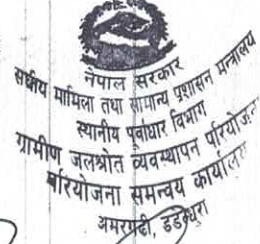 नेपाल सरकार
सघीय मामिला तथा सामान्य प्रशासन मन्त्रालय
स्थानीय पूर्वाधार विभाग
ग्रामीण जलश्रोत व्यवस्थापन परियोजना
परियोजना समन्वय कार्यालय
अमरगढी, डडेल्धुरा